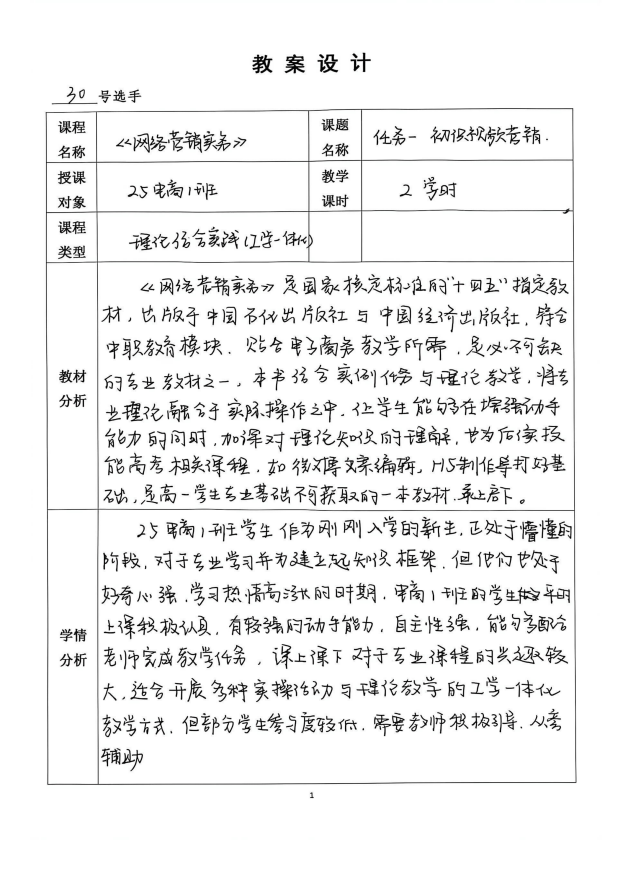 教案设计
30 号选手
课程名称 《网络营销实务》 课题名称 任务一 初识视频营销.
授课对象 25电商1班 教学课时 2 学时
课程类型 理论结合实践(工学一体化)
教材分析
《网络营销实务》是国家核定标准的"十四五"指定教
材, 出版于中国石化出版社与中国经济出版社, 符合
中职教育模块. 贴合电子商务教学所需, 是必不可缺
的专业教材之一, 本书结合实例任务与理论教学, 将专
业理论融合于实际操作之中, 让学生能够在增强动手
能力的同时, 加深对理论知识的理解, 也为后续技
能高考相关课程, 如微博文案编辑, H5制作等打好基
础, 是高一学生专业基础不可获取的一本教材. 承上启下。
学情分析
25电商1班学生作为刚刚入学的新生, 正处于懵懂的
阶段, 对于专业学习并为建立起知识框架. 但他们也处于
好奇心强, 学习热情高涨的时期, 电商1班的学生平时
上课积极认真, 有较强的动手能力, 自主性强, 能够配合
老师完成教学任务, 课上课下对于专业课程的兴趣较
大, 适合开展各种实操活动与理论教学的工学一体化
教学方式. 但部分学生参与度较低. 需要教师积极引导. 从旁
辅助
1